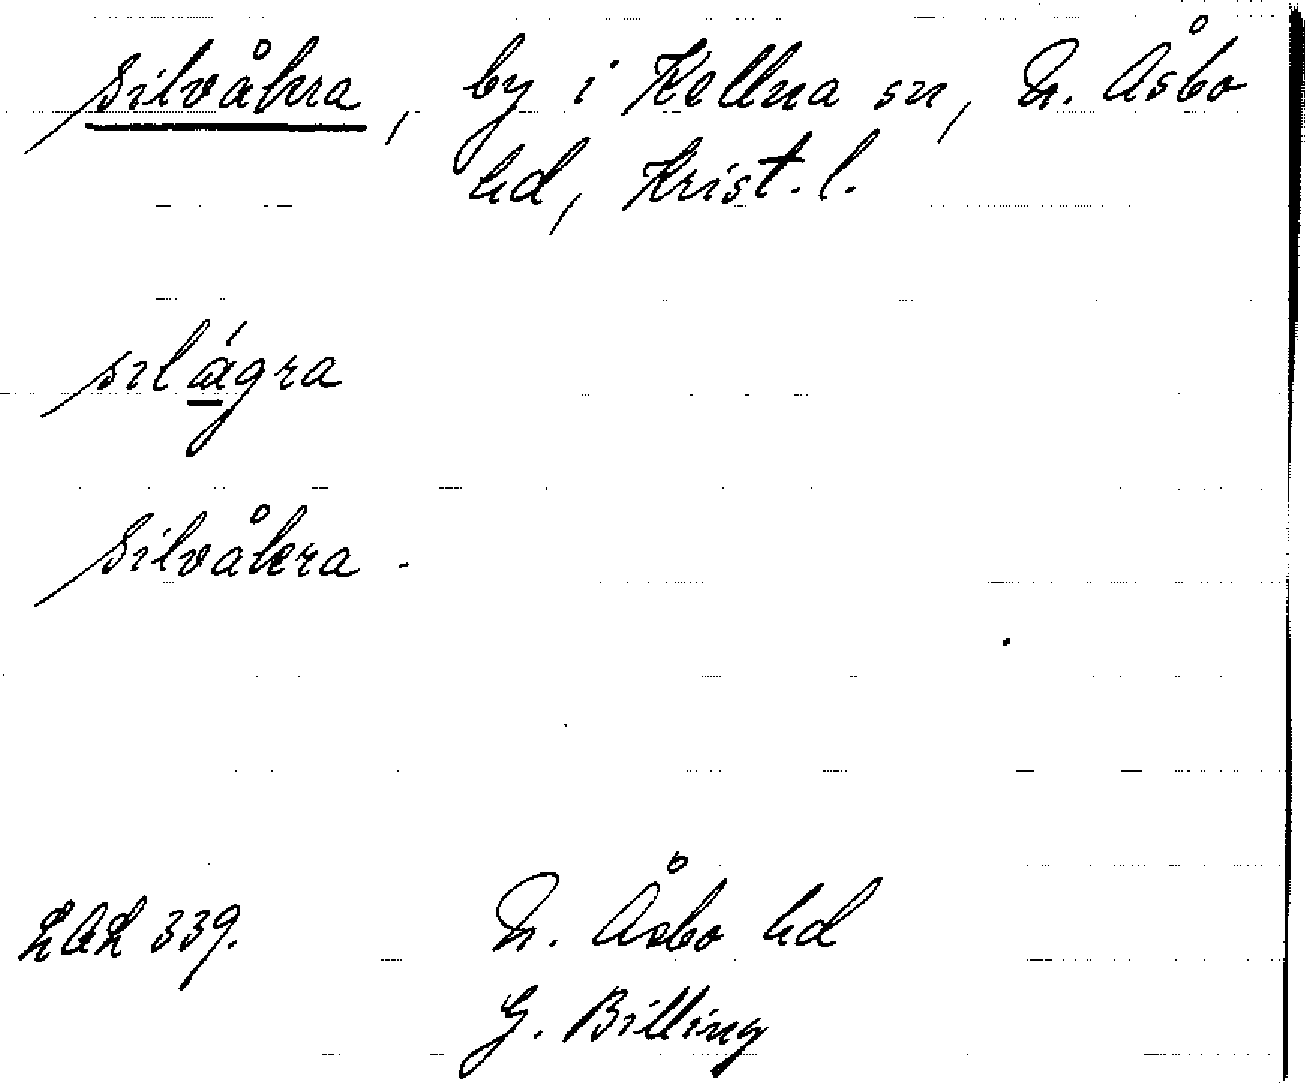 Silvåkra, by i Källna sn, N. Åsbo
hd, Krist. l.
sɩlágra
Silvåkra.
LAL 339.
N. Åsbo hd
G. Billing